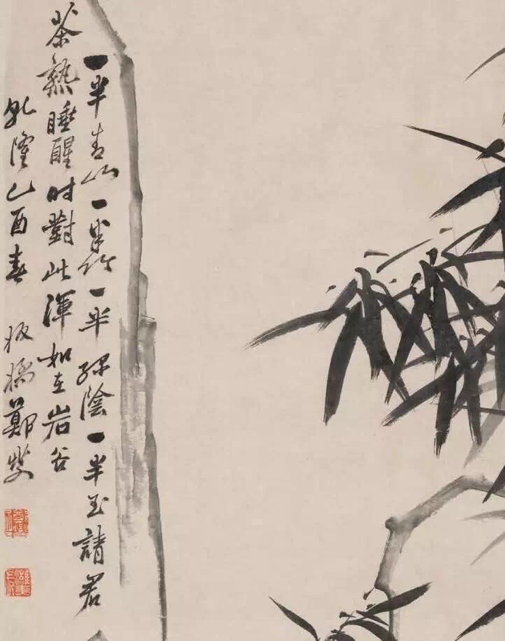 一半青山一半竹一半綠陰一半玉請君
茶熟睡醒时對此渾如在岩谷
乾隆乙酉春 板橋鄭燮